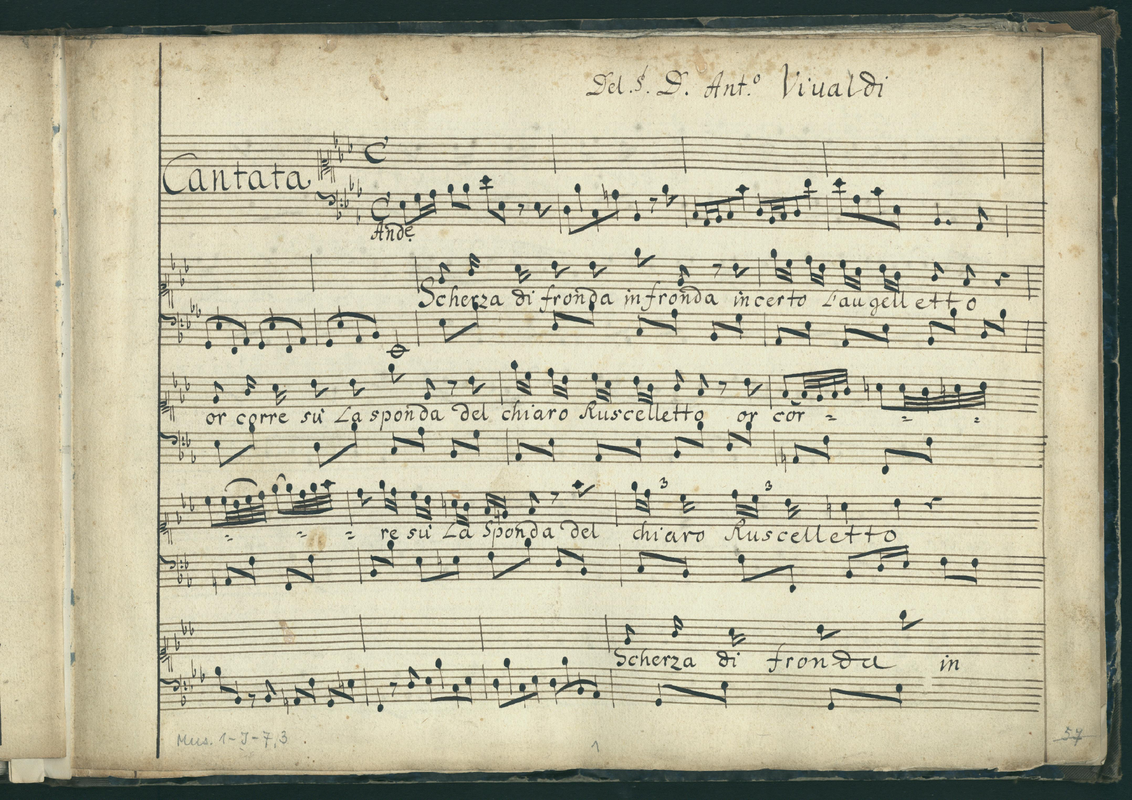 Del. S.r D. Ant.o Viualdi
Cantata
C
C
And.e
Scherza di fronda in fronda incerto L'augelletto
or corre su La sponda del chiaro Ruscelletto or cor - - -
- - - re su La Sponda del chiaro Ruscelletto
3 3
Scherza di fronda in
Mus. 1-J-7,3.
1
57